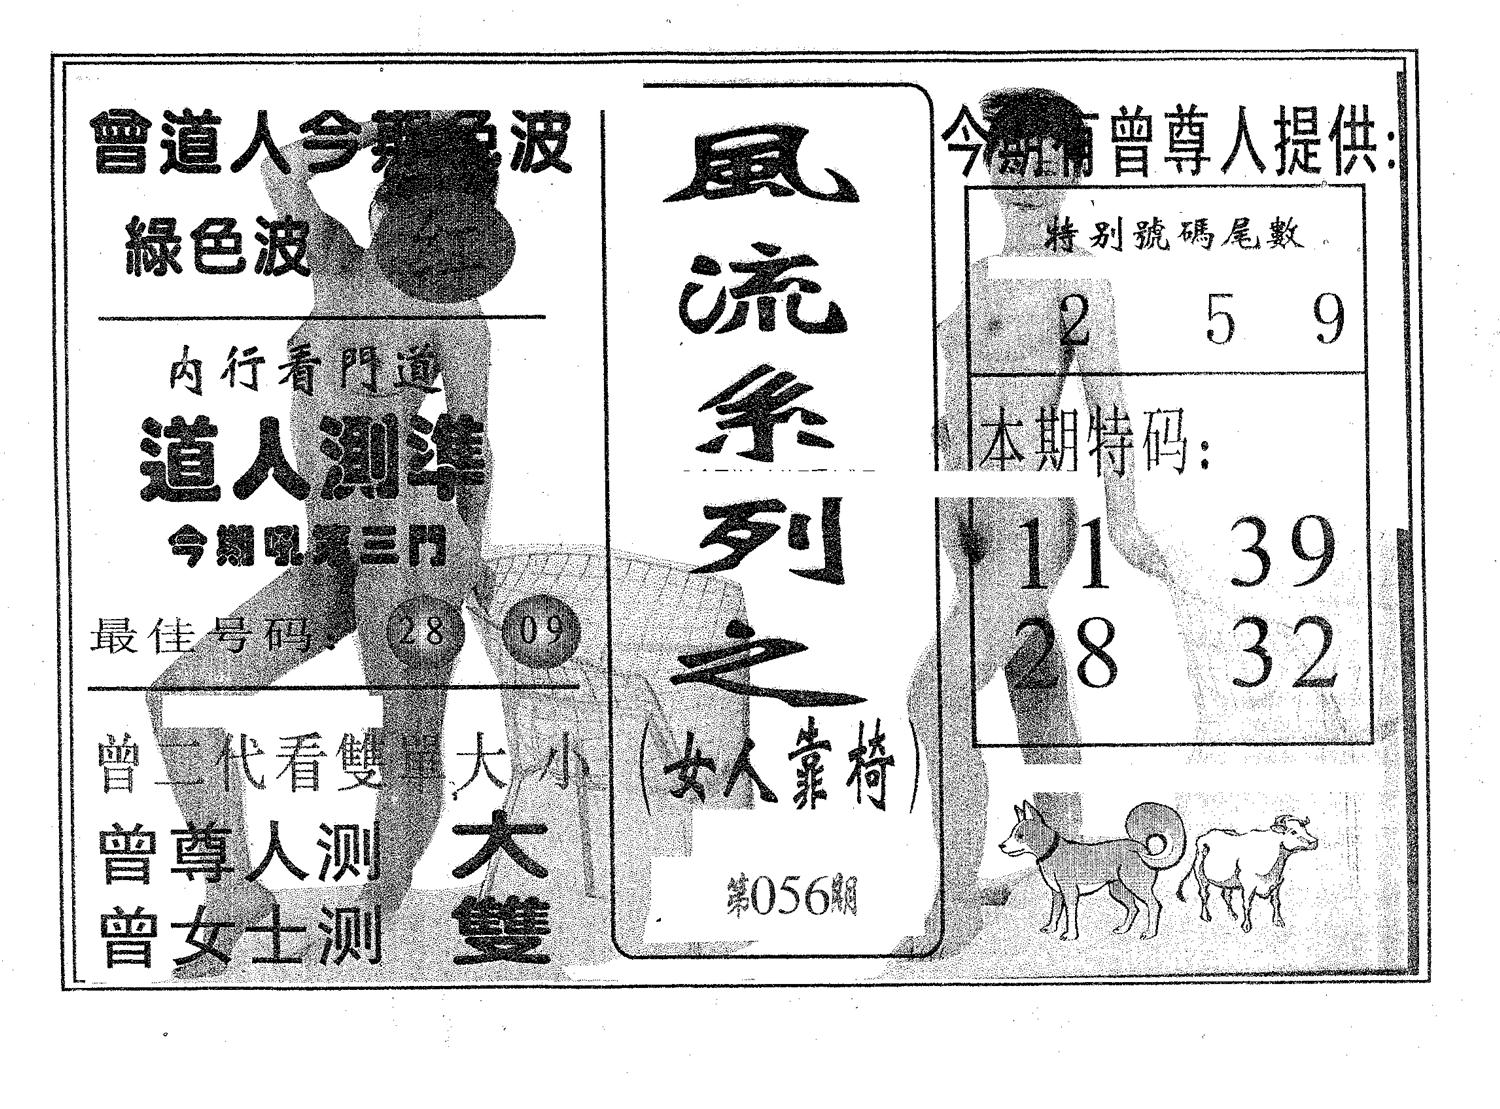 曾道人今期色波
綠色波 紅
内行看門道
道人測準
今期吼第三門
最佳号码: 28 09
曾二代看雙單大小
曾尊人测 大
曾女士测 雙
風流系列之
(女人靠椅)
第056期
今期有曾尊人提供:
特别號碼尾數
2 5 9
本期特码:
11 39
28 32